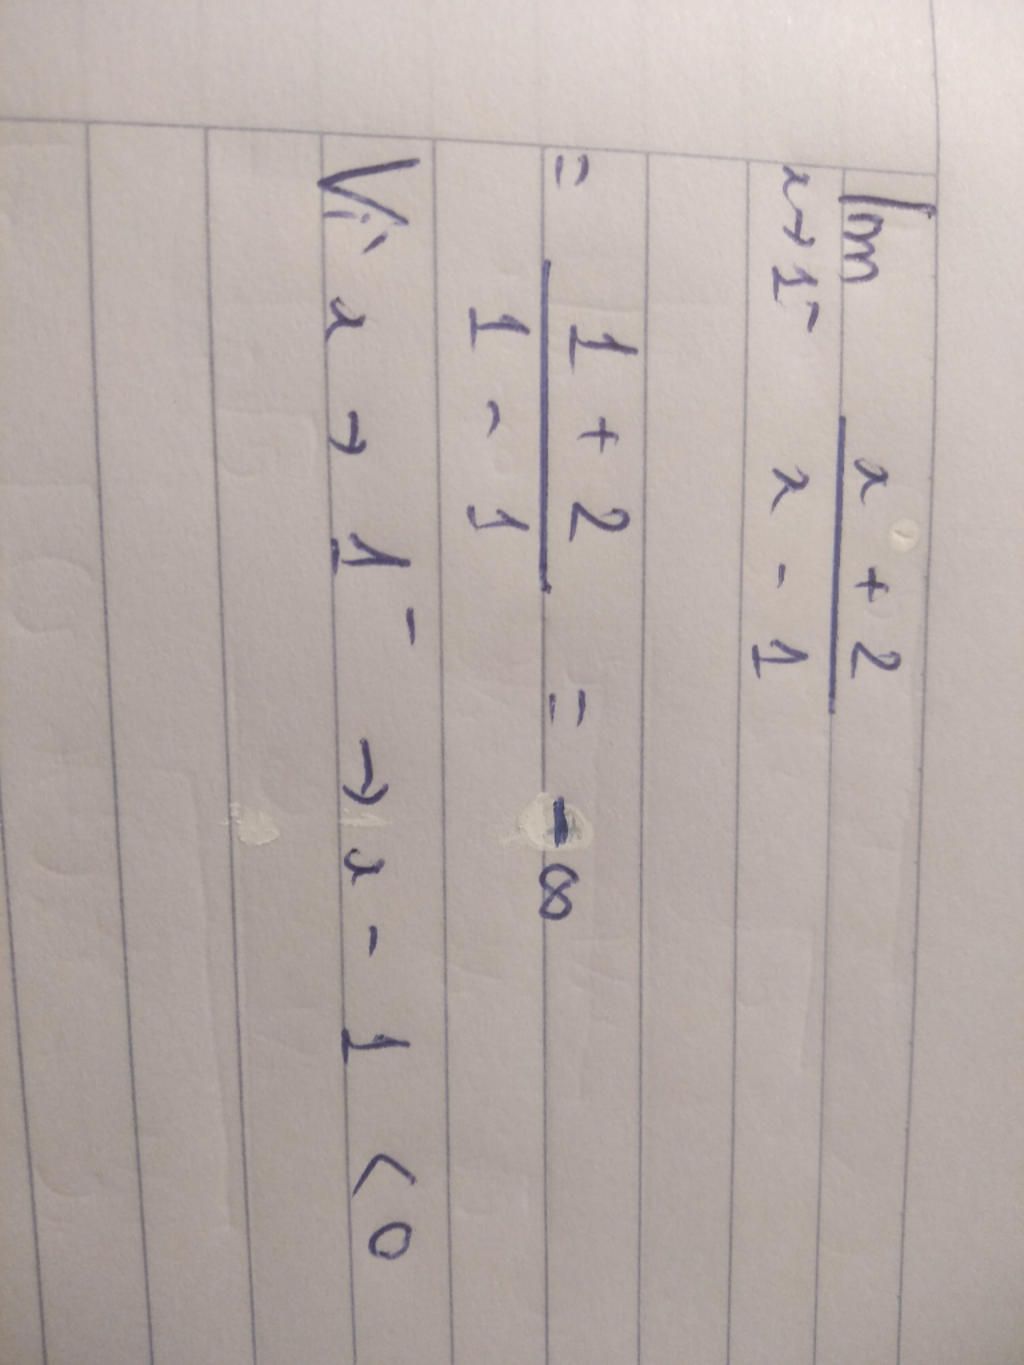 lim x + 2
x→1⁻ x - 1
= 1 + 2 = -∞
1 - 1
Vì x → 1⁻ → x - 1 < 0